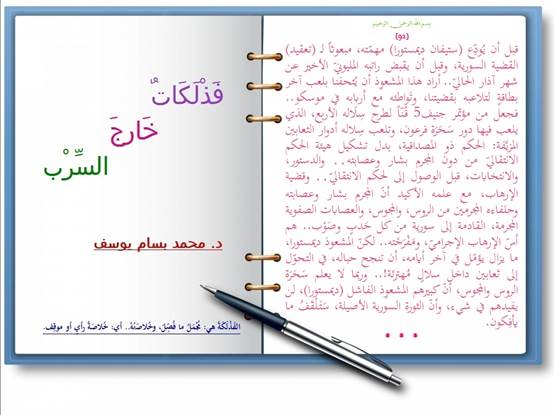 بسم الله الرحمن الرحيم
(92)
قبل أن يُودّع (ستيفان ديمستورا) مهمّته، مبعوثاً لـ (تعقيد)
القضية السورية، وقبل أن يقبض راتبه المليونيّ الأخير عن
شهر آذار الحاليّ.. أراد هذا المشعوذ أن يُتحفنا بلعب آخر
بطاقةٍ لتلاعبه بقضيتنا، وتَواطئه مع أربابه في موسكو..
فجعل من مؤتمر جنيف5 فنّاً لطرح سِلاله الأربع، الذي
يلعب فيها دور سَحَرَة فرعون، وتلعب سِلاله أدوار الثعابين
المزيَّفة: الحكم ذو المصداقية، بدل تشكيل هيئة الحكم
الانتقاليّ من دون المجرم بشار وعصابته.. والدستور،
والانتخابات، قبل الوصول إلى حكمٍ الانتقاليّ.. وقضية
الإرهاب، مع علمه الأكيد أنّ المجرم بشار وعصابته
وحلفاءه المجرمين من الروس، والمجوس، والعصابات الصفوية
المجرمة، القادمة إلى سورية من كل حَدَبٍ وصَوْب.. هم
أسّ الإرهاب الإجراميّ، ومَفْرَخَته.. لكنّ المشعوذ ديمستورا،
ما يزال يؤمّل في آخر أيامه، أن تنجح حباله، في التحوّل
إلى ثعابين داخل سلالٍ مُهترئة!.. وربما لا يعلم سَحَرَة
الروس والمجوس، أنّ كبيرهم المشعوذ الفاشل (ديمستورا)، لن
يفيدهم في شيء، وأنّ الثورة السورية الأصيلة، سَتَلْقَفُ ما
يأفِكون.
* * *
فَذْلَكَاتٌ
خَارِجَ
السِّرْب
د. محمد بسام يوسف
الفَذْلَكَةُ هي: مُجْمَلُ ما فُصِّلَ، وخُلاصَتُهُ.. أي: خُلاصَةُ رأيٍ أو موقِف.